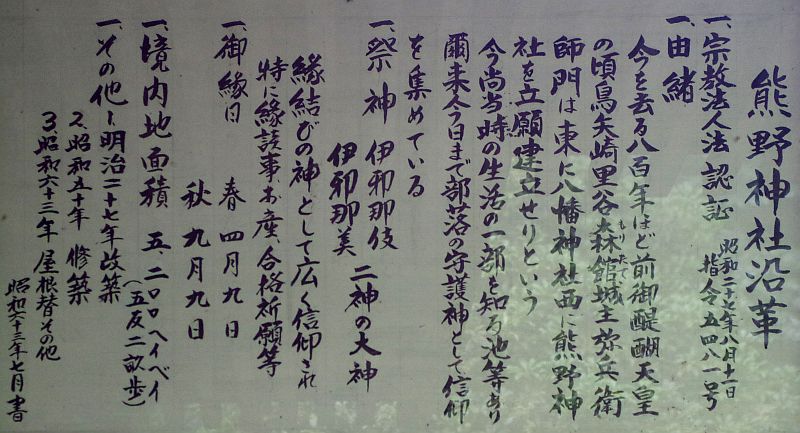 熊野神社沿革
一、宗教法人法 認証 昭和二十七年八月十一日
指令五四八一号
一、由緒
今を去る八百年ほど前御醍醐天皇
の頃鳥矢崎里谷森館城主弥兵衛
もりたて
師門は東に八幡神社西に熊野神
社を立願建立せりという
今尚当時の生活の一部を知る池等あり
爾来今日まで部落の守護神として信仰
を集めている
一、祭神 伊邪那伎
伊邪那美 二神の大神
縁結びの神として広く信仰され
特に縁談事お産、合格祈願等
一、御縁日 春 四月九日
秋 九月九日
一、境内地面積 五、二〇〇ヘイベイ
(五反二畝歩)
一、その他 1、明治二十七年改築
2、昭和五十年 修築
3、昭和六十三年 屋根替その他
昭和六十三年七月書